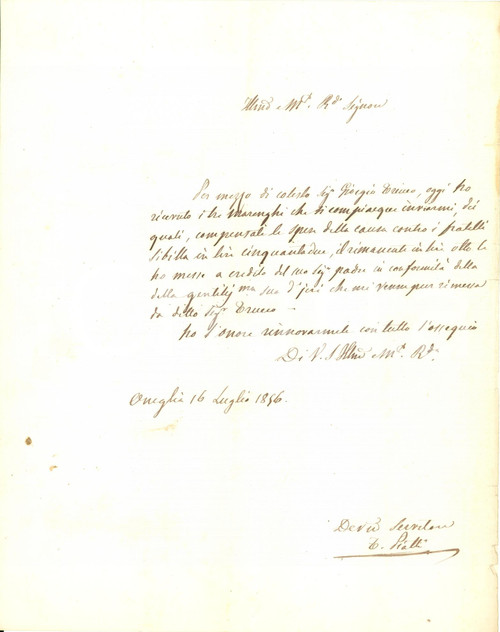 Illmo e Mto Rdo Signore
Per mezzo di cotesto Sigr Giorgio Trucco, oggi ho
ricevuto i tre marenghi che si compiacque inviarmi, dei
quali, compensate le spese della causa contro i fratelli
Sibilla in lire cinquantadue, il rimanente in lire otto le
ho messe a credito del suo Sigr padre in conformità della
della gentilisma sua d'jeri che mi venne pur rimessa
da detto Sigr Trucco -
Ho l'onore rinnovarmele con tutto l'ossequio
Di V. S. Illma e Mto Rda
Oneglia 16 Luglio 1856.
Devo Servitore